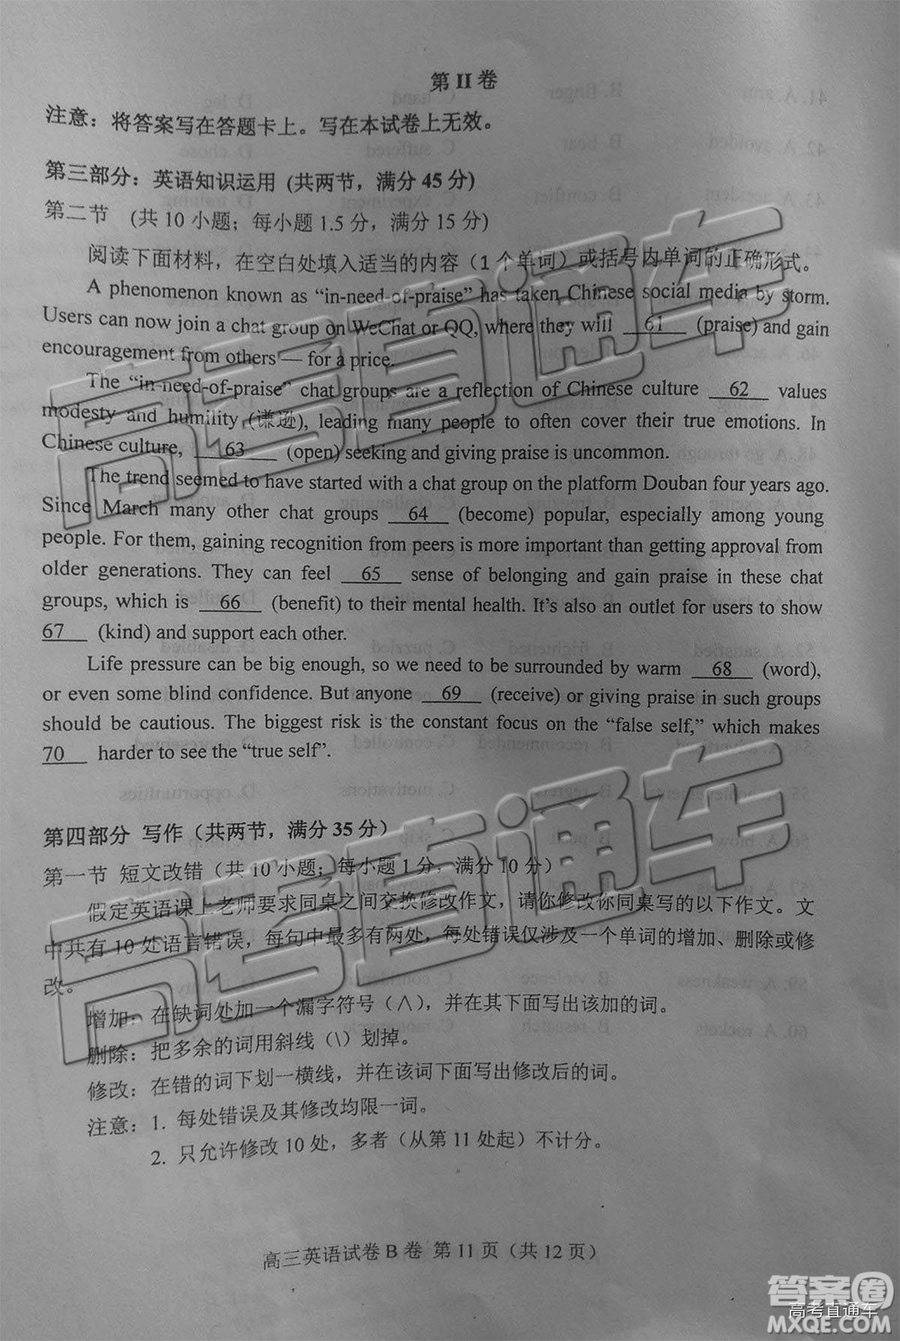 第 II 卷
注意：将答案写在答题卡上。写在本试卷上无效。
第三部分：英语知识运用 (共两节，满分 45 分)
第二节 (共 10 小题；每小题 1.5 分，满分 15 分)
阅读下面材料，在空白处填入适当的内容（1 个单词）或括号内单词的正确形式。
A phenomenon known as “in-need-of-praise” has taken Chinese social media by storm.
Users can now join a chat group on WeChat or QQ, where they will 61 (praise) and gain
encouragement from others — for a price.
The “in-need-of-praise” chat groups are a reflection of Chinese culture 62 values
modesty and humility (谦逊), leading many people to often cover their true emotions. In
Chinese culture, 63 (open) seeking and giving praise is uncommon.
The trend seemed to have started with a chat group on the platform Douban four years ago.
Since March many other chat groups 64 (become) popular, especially among young
people. For them, gaining recognition from peers is more important than getting approval from
older generations. They can feel 65 sense of belonging and gain praise in these chat
groups, which is 66 (benefit) to their mental health. It’s also an outlet for users to show
67 (kind) and support each other.
Life pressure can be big enough, so we need to be surrounded by warm 68 (word),
or even some blind confidence. But anyone 69 (receive) or giving praise in such groups
should be cautious. The biggest risk is the constant focus on the “false self,” which makes
70 harder to see the “true self”.
第四部分 写作（共两节，满分 35 分）
第一节 短文改错（共 10 小题；每小题 1 分，满分 10 分）
假定英语课上老师要求同桌之间交换修改作文，请你修改你同桌写的以下作文。文
中共有 10 处语言错误，每句中最多有两处，每处错误仅涉及一个单词的增加、删除或修
改。
增加：在缺词处加一个漏字符号（∧），并在其下面写出该加的词。
删除：把多余的词用斜线（\）划掉。
修改：在错的词下划一横线，并在该词下面写出修改后的词。
注意：1. 每处错误及其修改均限一词。
2. 只允许修改 10 处，多者（从第 11 处起）不计分。
高三英语试卷 B 卷 第 11 页（共 12 页）
高考直通车
高考直通车
答案圈
高考直通车
MXQE.COM